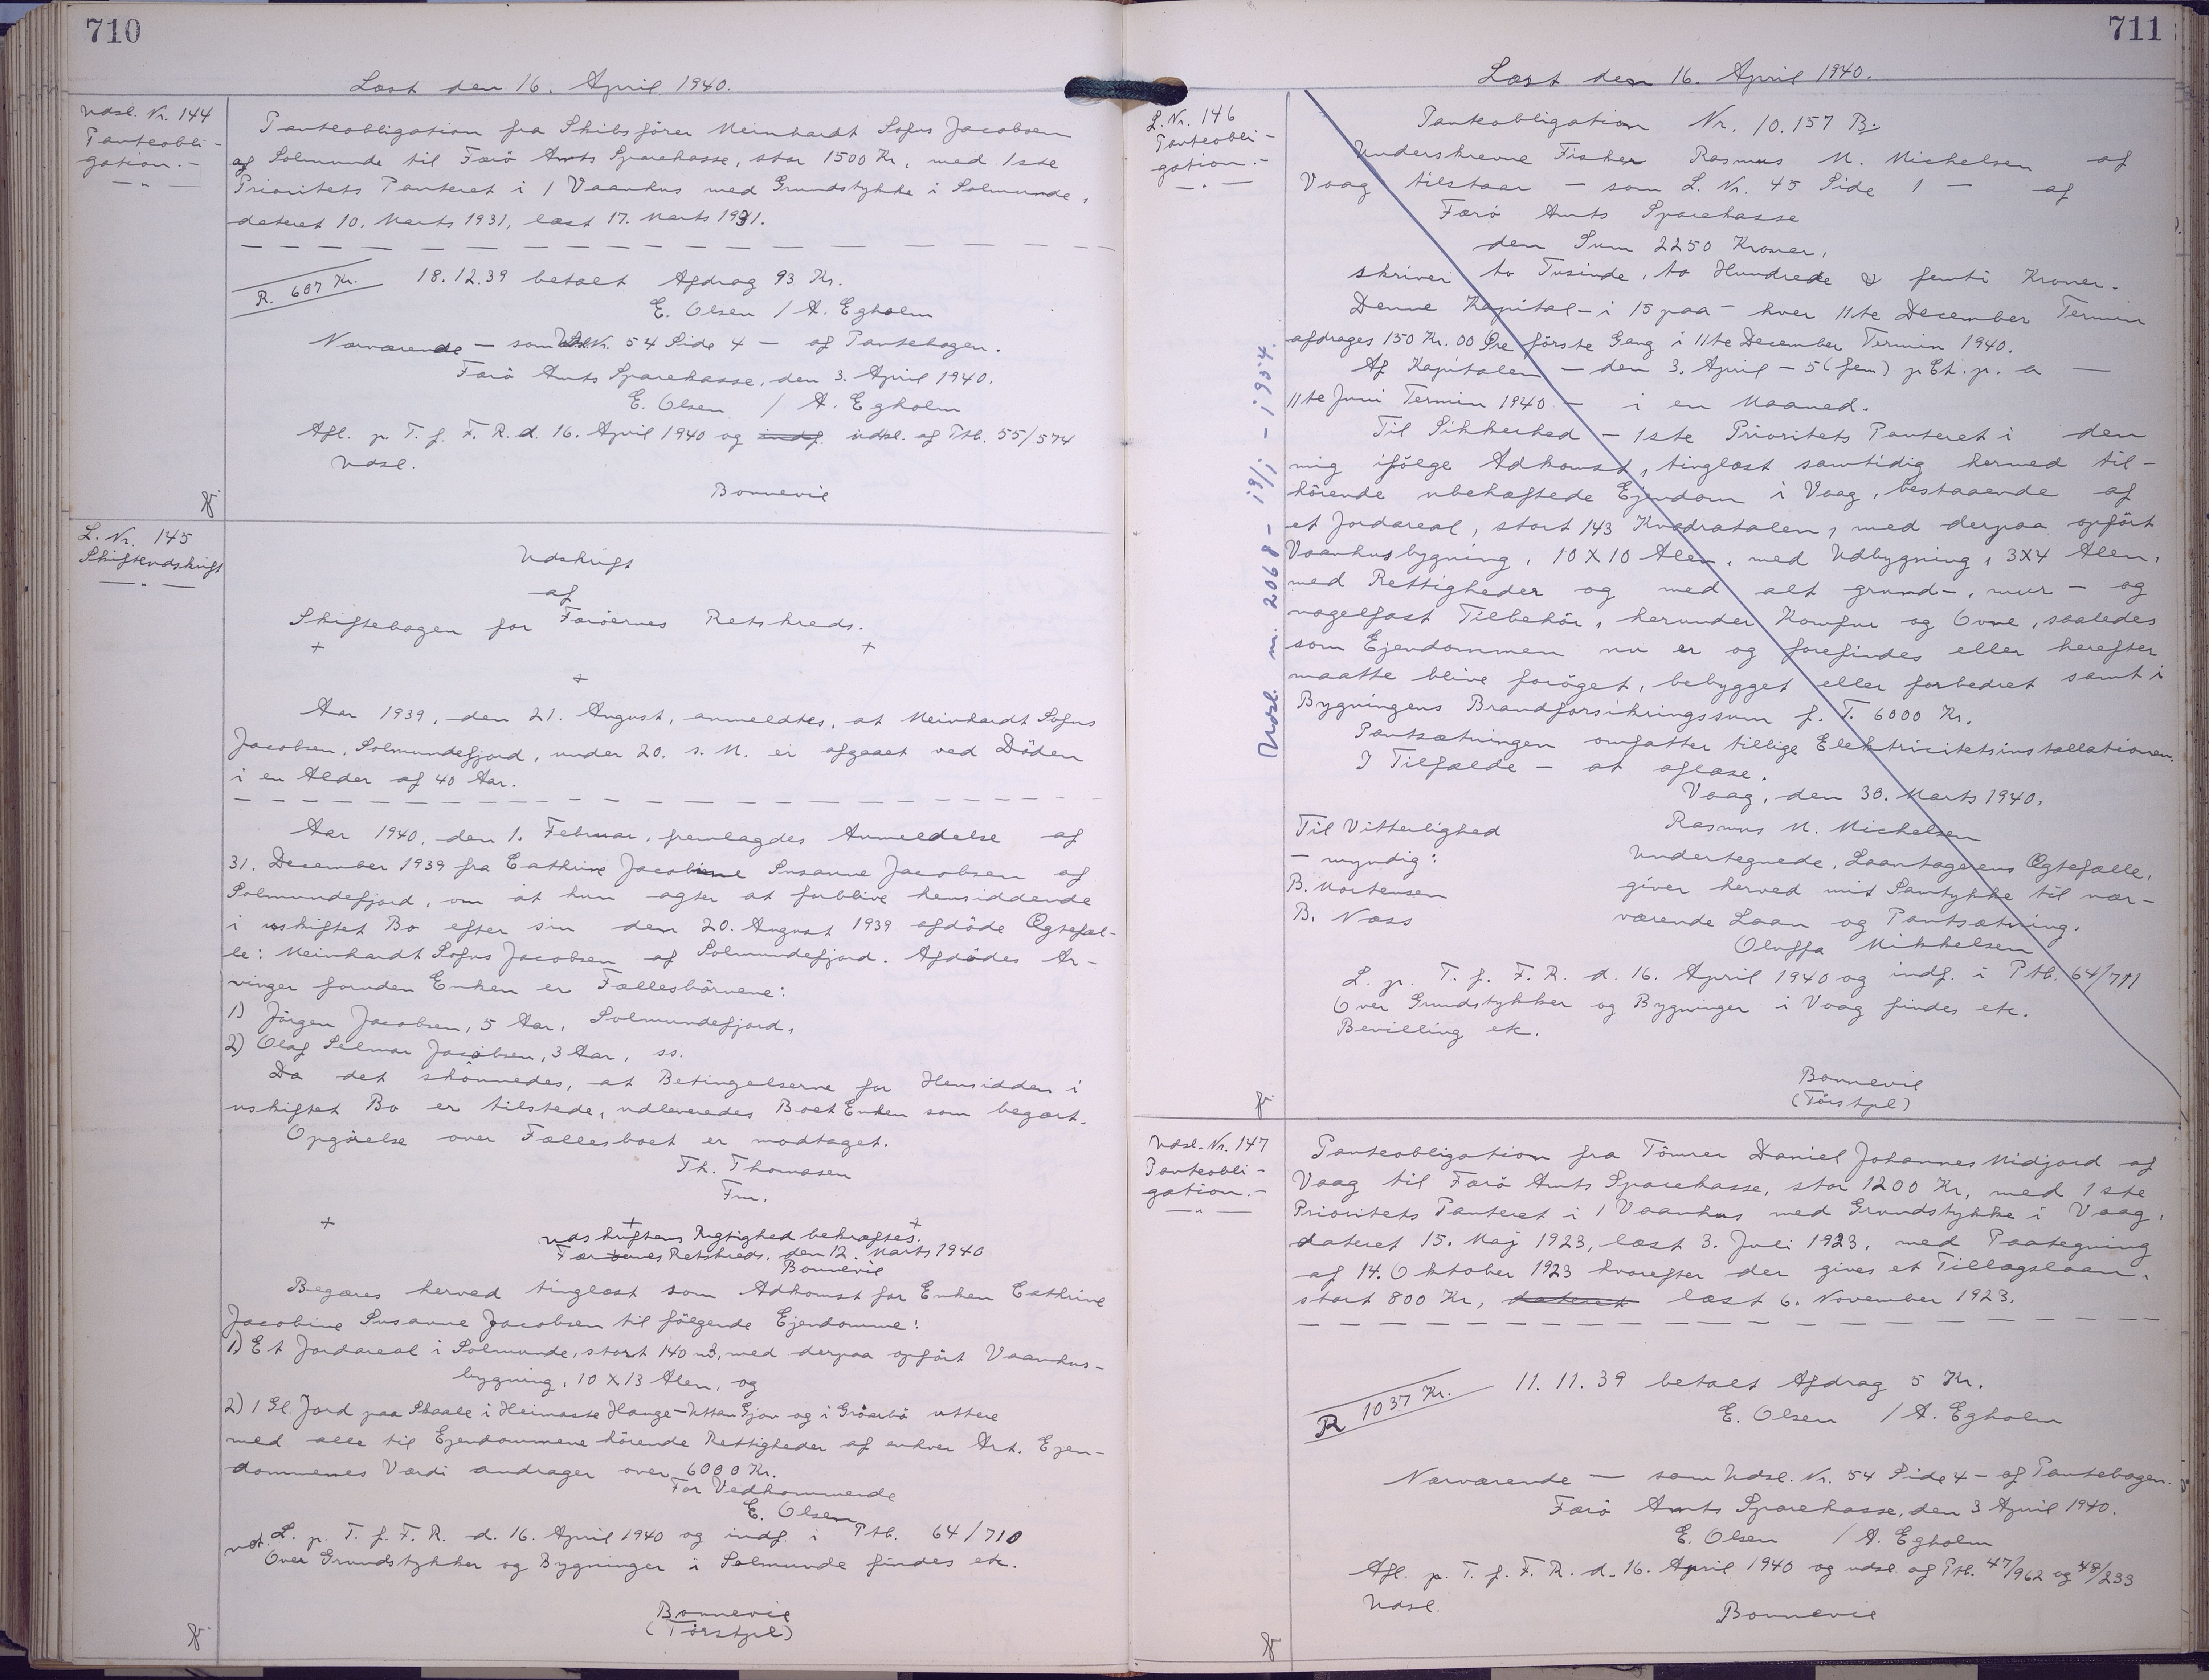 710
Læst den 16. April 1940.
Udsl. Nr. 144
Panteobli-
gation.-
Panteobligation fra Skibsfører Meinhardt Sofus Jacobsen
af Solmunde til Færö Amts Sparekasse, stor 1500 Kr, med 1ste
Prioritets Panteret i 1 Vaanhus med Grundstykke i Solmunde,
dateret 10. Marts 1931, læst 17. Marts 1931.
R. 607 Kr. 18.12.39 betalt Afdrag 93 Kr.
E. Olsen / A. Egholm
Nærværende - som Udsl. Nr. 54 Side 4 - af Pantebogen.
Færö Amts Sparekasse, den 3. April 1940.
E. Olsen / A. Egholm
Afl. p. T. f. F. R. d. 16. April 1940 og indf. udsl. af Ptb. 55/574
Udsl.
Bonnevie
L. Nr. 145
Skifteudskrift
Udskrift
af
Skiftebogen for Færöernes Retskreds.
Aar 1939, den 21. August, anmeldtes, at Meinhardt Sofus
Jacobsen, Solmundefjord, under 20. s. M. er afgaaet ved Döden
i en Alder af 40 Aar.
Aar 1940, den 1. Februar, fremlagdes Anmeldelse af
31. December 1939 fra Cathrine Jacobine Susanne Jacobsen af
Solmundefjord, om at hun agter at forblive hensiddende
i uskiftet Bo efter sin den 20. August 1939 afdöde Ægtefæl-
le: Meinhardt Sofus Jacobsen af Solmundefjord. Afdödes Ar-
vinger foruden Enken er Fællesbörnene:
1) Jörgen Jacobsen, 5 Aar, Solmundefjord,
2) Olaf Selmar Jacobsen, 3 Aar, ss.
Da det skönnedes, at Betingelserne for Hensidden i
uskiftet Bo er tilstede, udleveredes Boet Enken som begært.
Opgörelse over Fællesboet er modtaget.
Th. Thomasen
Fm.
Udskriftens Rigtighed bekræftes.
Færöernes Retskreds, den 12. Marts 1940
Bonnevie
Begæres herved tinglæst som Adkomst for Enken Cathrine
Jacobine Susanne Jacobsen til fölgende Ejendomme:
1) Et Jordareal i Solmunde, stort 140 m2, med derpaa opfört Vaanhus-
bygning, 10 X 13 Alen, og
2) 1 Gl. Jord paa Skaale i Heimaste Hauge - Uttan Gjov og i Gröarbö uttere
med alle til Ejendommene hörende Rettigheder af enhver Art. Ejen-
dommenes Værdi andrager over 6000 Kr.
For Vedkommende
E. Olsen
L. p. T. f. F. R. d. 16. April 1940 og indf. i Ptb. 64/710
Over Grundstykker og Bygninger i Solmunde findes etc.
Bonnevie
(Törstpl)
711
Læst den 16. April 1940.
L. Nr. 146
Panteobli-
gation.-
Udsl. nr. 2068 - 19/1 - 1954
Panteobligation Nr. 10.157 B.
Underskrevne Fisker Rasmus M. Michelsen af
Vaag tilstaar - som L. Nr. 45 Side 1 - af
Færö Amts Sparekasse
den Sum 2250 Kroner,
skriver to Tusinde, to Hundrede & femti Kroner.
Denne Kapital - i 15 paa - hver 11te December Termin
afdrages 150 Kr. 00 Øre förste Gang i 11te December Termin 1940.
Af Kapitalen - den 3. April - 5 (fem) pCt. p. a -
11te Juni Termin 1940 - i en Maaned.
Til Sikkerhed - 1ste Prioritets Panteret i den
mig ifölge Adkomst, tinglæst samtidig hermed til-
hörende ubehæftede Ejendom i Vaag, bestaaende af
et Jordareal, stort 143 Kvadratalen, med derpaa opfört
Vaanhusbygning, 10 X 10 Alen, med Udbygning, 3X4 Alen,
med Rettigheder og med alt grund-, mur- og
nagelfast Tilbehör, herunder Komfur og Ovne, saaledes
som Ejendommen nu er og forefindes eller herefter
maatte blive foröget, bebygget eller forbedret samt i
Bygningens Brandforsikringssum f. T. 6000 Kr.
Pantsætningen omfatter tillige Elektricitetsinstallationen.
I Tilfælde - at aflæse.
Vaag, den 30. Marts 1940.
Til Vitterlighed Rasmus M. Michelsen
- myndig: Undertegnede, Laantagerens Ægtefælle,
B. Mortensen giver herved mit Samtykke til nær-
B. Næss værende Laan og Pantsætning.
Oluffa Mikkelsen
L. p. T. f. F. R. d. 16. April 1940 og indf. i Ptb. 64/711
Over Grundstykker og Bygninger i Vaag findes etc.
Bevilling etc.
Bonnevie
(Törstpl)
Udsl. Nr. 147
Panteobli-
gation.-
Panteobligation fra Tömrer Daniel Johannes Midjord af
Vaag til Færö Amts Sparekasse, stor 1200 Kr, med 1ste
Prioritets Panteret i 1 Vaanhus med Grundstykke i Vaag,
dateret 15. Maj 1923, læst 3. Juli 1923, med Paategning
af 14. Oktober 1923 hvorefter der gives et Tillægslaan,
stort 800 Kr, dateret læst 6. November 1923.
R 1037 Kr. 11.11.39 betalt Afdrag 5 Kr.
E. Olsen / A. Egholm
Nærværende - som Udsl. Nr. 54 Side 4 - af Pantebogen.
Færö Amts Sparekasse, den 3 April 1940.
E. Olsen / A. Egholm
Afl. p. T. f. F. R. d. 16. April 1940 og udsl. af Ptb. 47/962 og 48/233
Udsl.
Bonnevie